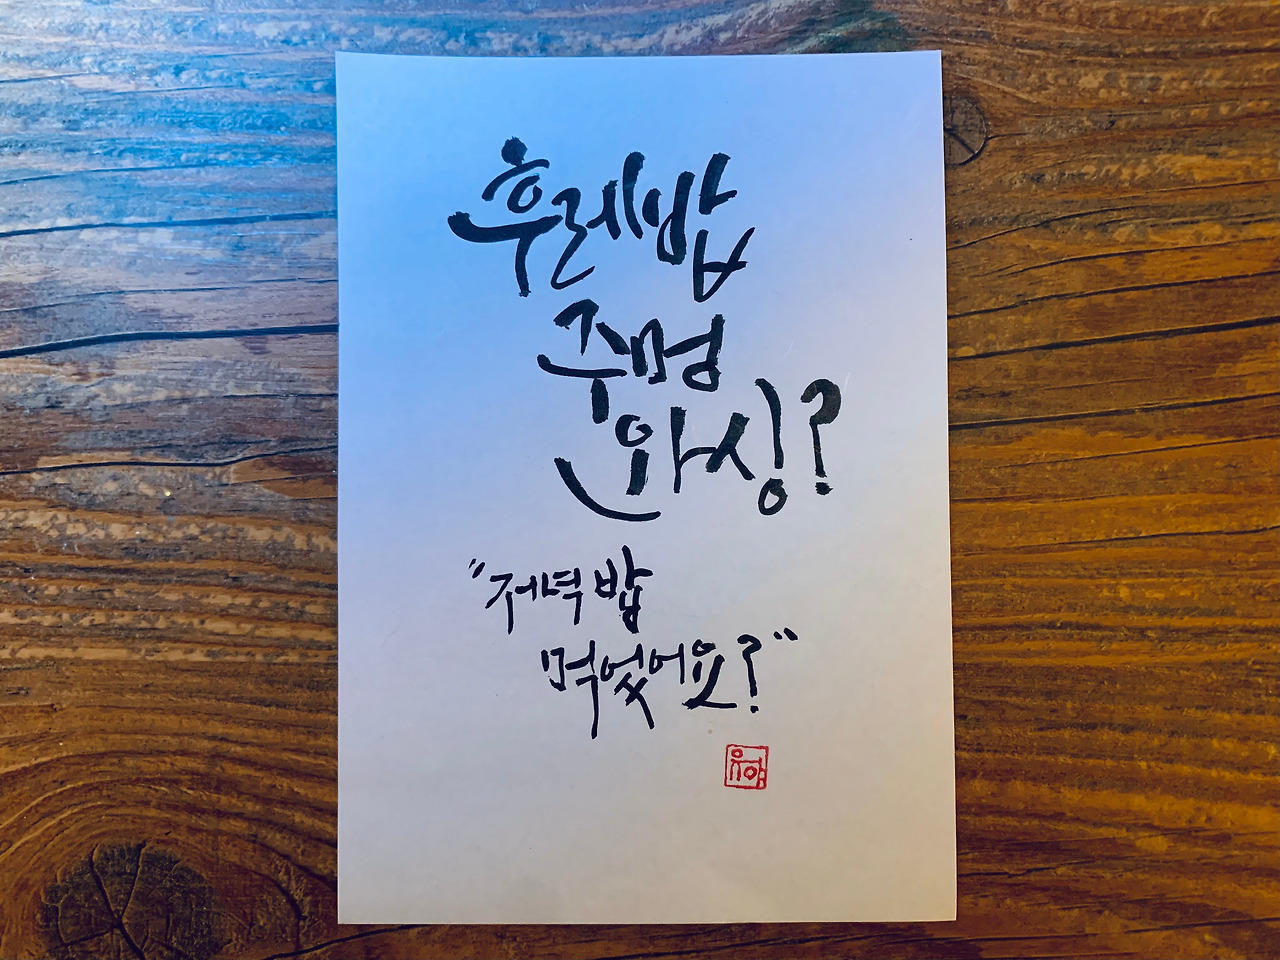 후레밥
주멍
와싱?
"저녁밥
먹었어요?"